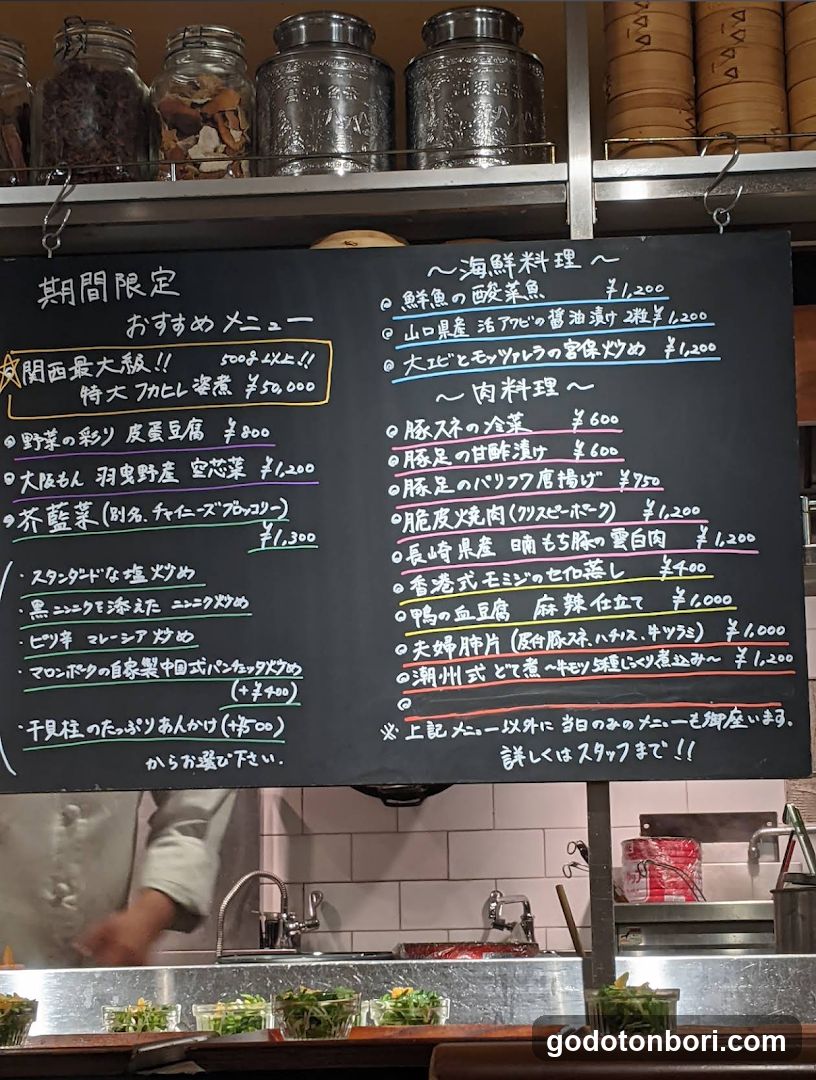 期間限定
おすすめメニュー
関西最大級!! 500g以上!!
特大フカヒレ姿煮 ¥50,000
野菜の彩り 皮蛋豆腐 ¥800
大阪もん 羽曳野産 空芯菜 ¥1,200
芥藍菜(別名、チャイニーズブロッコリー)
¥1,300
・スタンダードな塩炒め
・黒ニンニクを添えた ニンニク炒め
・ピリ辛 マレーシア炒め
・マロンポークの自家製中国式パンチェッタ炒め
(+¥400)
・干貝柱のたっぷりあんかけ(+¥500)
からお選び下さい.
〜海鮮料理〜
鮮魚の酸菜魚 ¥1,200
山口県産 活アワビの醤油漬け 2粒 ¥1,200
大エビとモッツァレラの宮保炒め ¥1,200
〜肉料理〜
豚スネの冷菜 ¥600
豚足の甘酢漬け ¥600
豚足のパリフワ唐揚げ ¥750
脆皮焼肉(クリスピーポーク) ¥1,200
長崎県産 日南もち豚の雲白肉 ¥1,200
香港式モミジのセイロ蒸し ¥400
鴨の血豆腐 麻辣仕立て ¥1,000
夫婦肺片(皮付豚スネ、ハチノス、牛ツラミ) ¥1,000
潮州式どて煮 〜牛モツ5種じっくり煮込み〜 ¥1,200
※上記メニュー以外に当日のみのメニューも御座います.
詳しくはスタッフまで!!
godotonbori.com